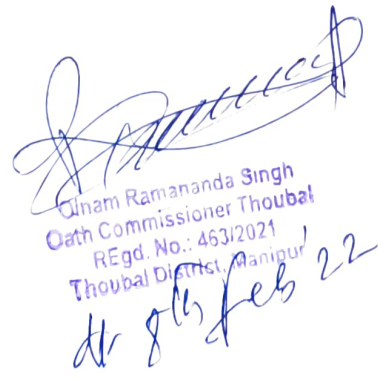 Oinam Ramananda Singh
Oath Commissioner Thoubal
REgd. No.: 463/2021
Thoubal District, Manipur
8th Feb' 22